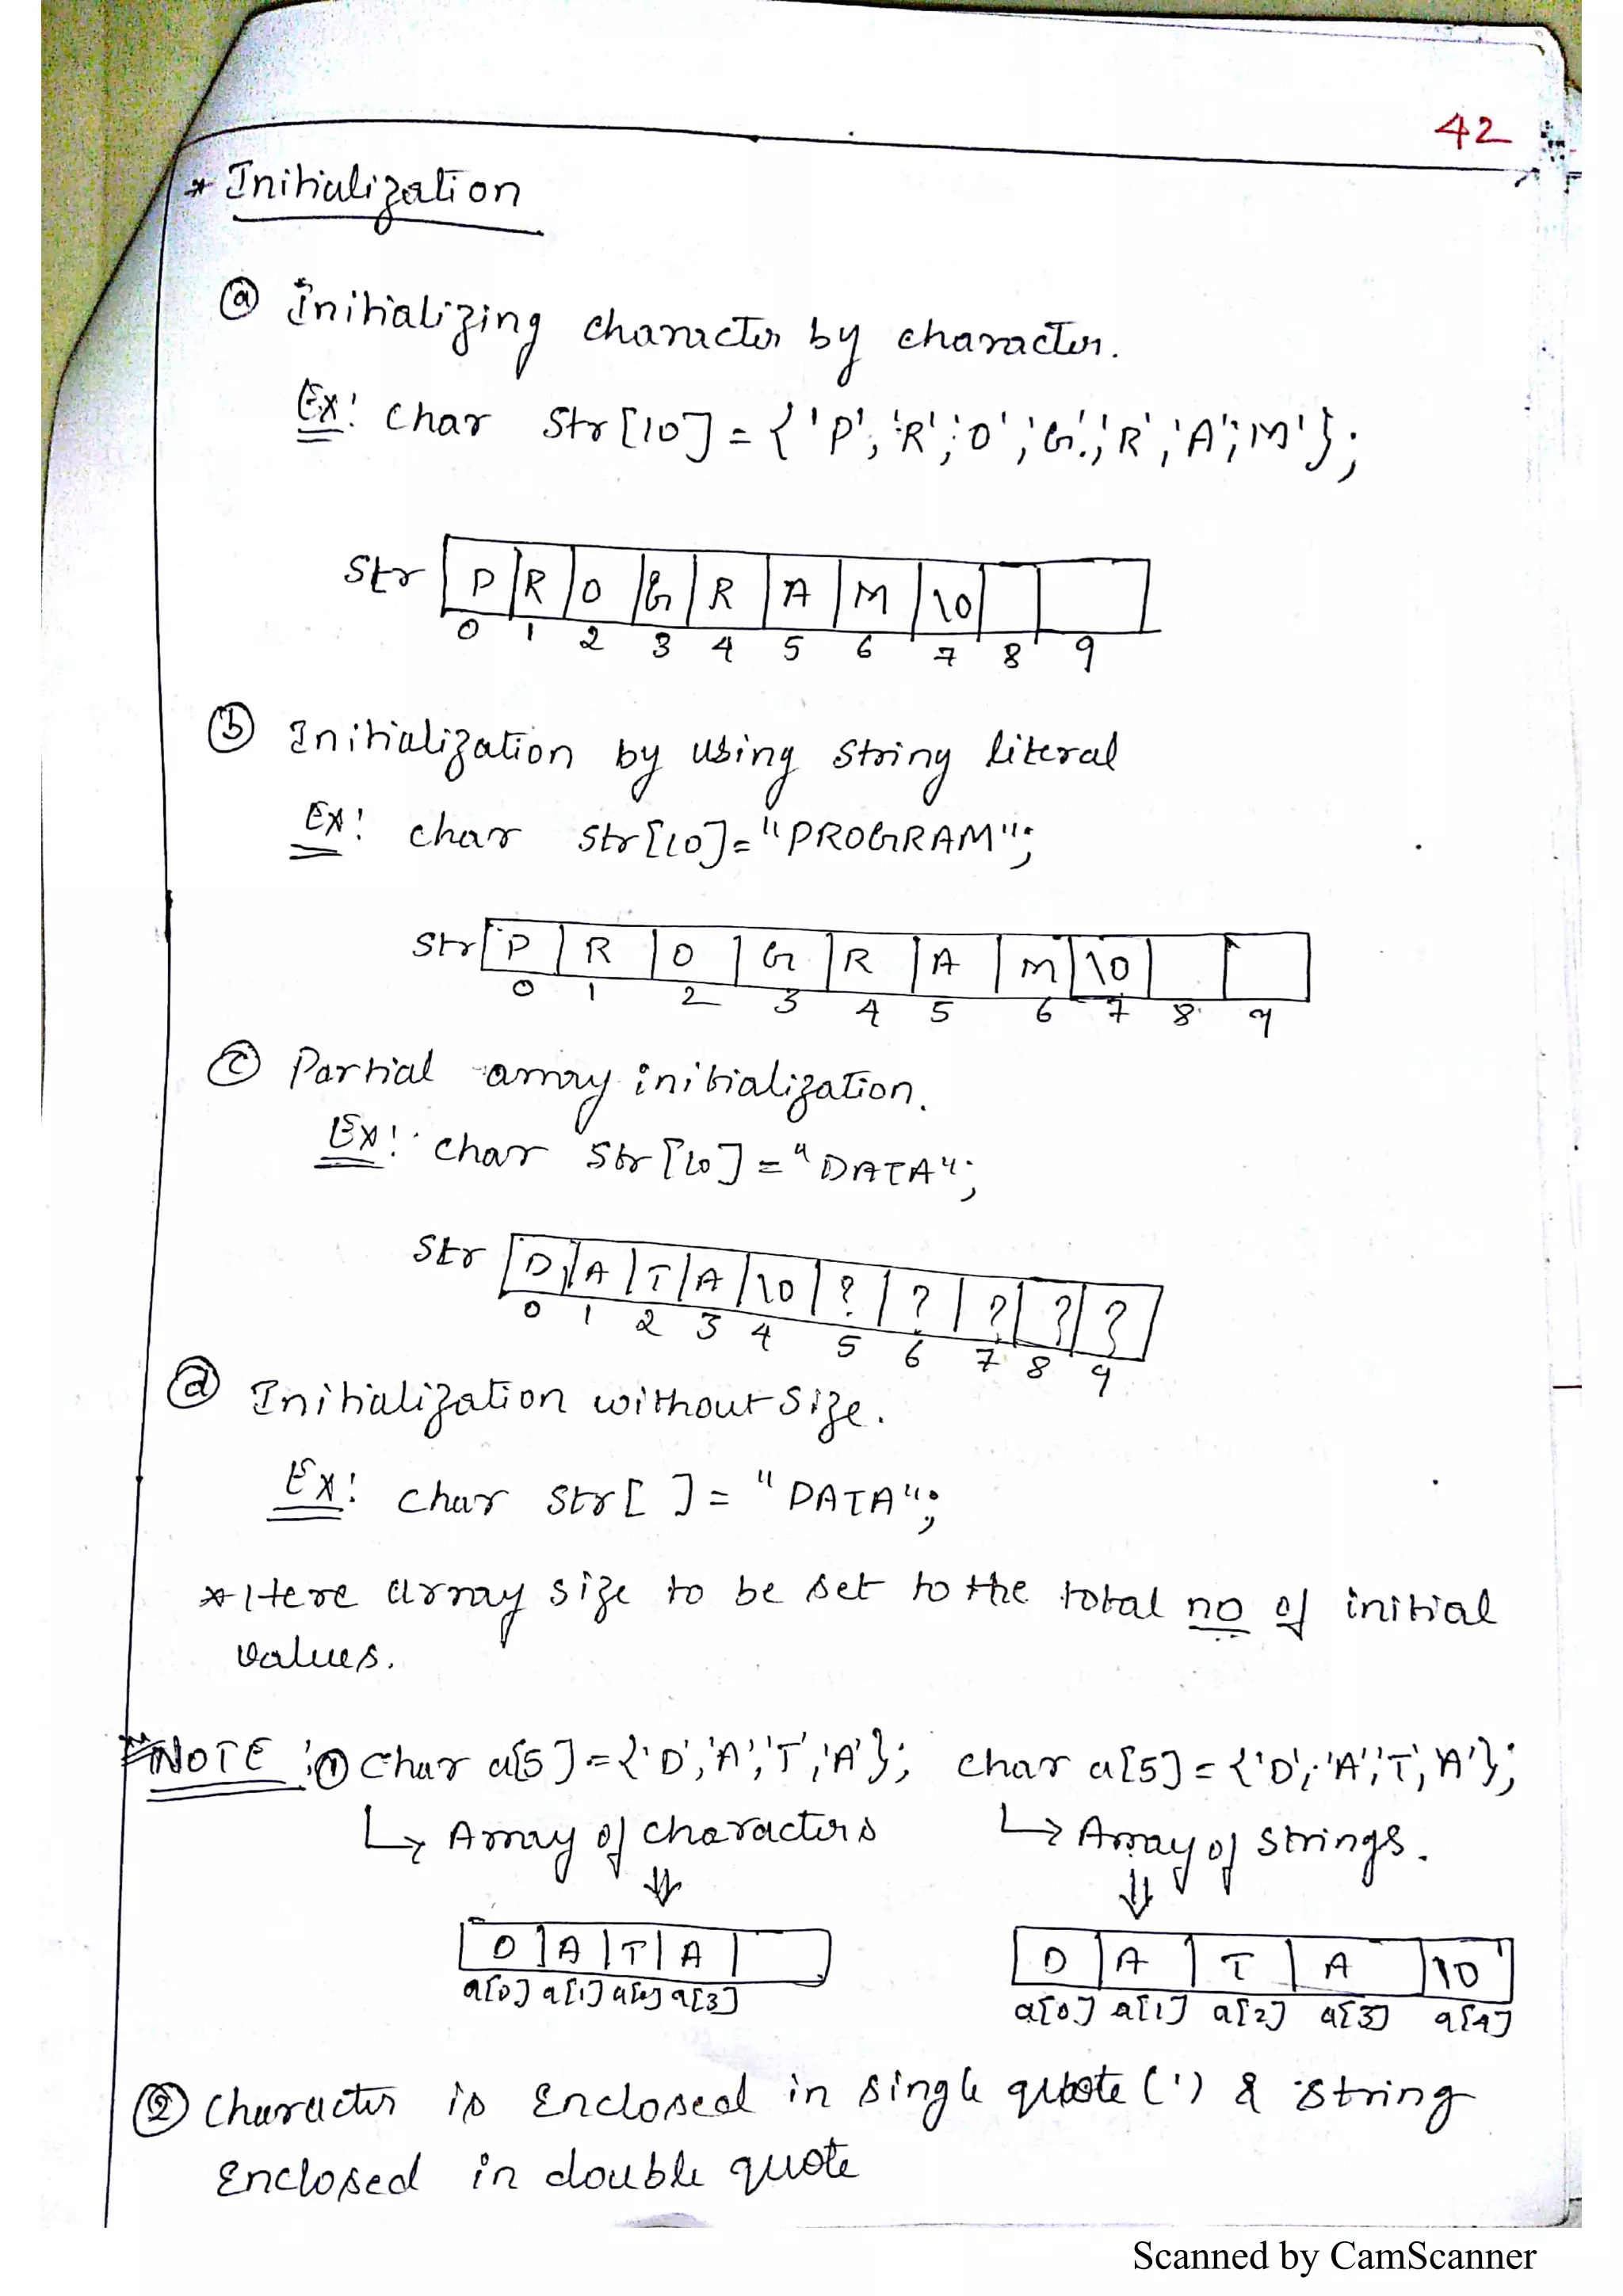 42
* Initialization
ⓐ Initializing character by character.
Ex: char str[10] = {'P','R','O','G','R','A','M'};
str P R O G R A M \0
0 1 2 3 4 5 6 7 8 9
ⓑ Initialization by using string literal
Ex: char str[10]="PROGRAM";
str P R O G R A M \0
0 1 2 3 4 5 6 7 8 9
ⓒ Partial array initialization.
Ex: char str[10] = "DATA";
str D A T A \0 ? ? ? ? ?
0 1 2 3 4 5 6 7 8 9
ⓓ Initialization without size.
Ex: char str[ ] = "DATA";
* Here array size to be set to the total no of initial
values.
NOTE: ① char a[5] = {'D','A','T','A'}; char a[5] = {'D','A','T','A'};
↳ Array of characters ↳ Array of strings.
⇓ ⇓
D A T A D A T A \0
a[0] a[1] a[2] a[3] a[0] a[1] a[2] a[3] a[4]
② Character is Enclosed in single quote (') & string
Enclosed in double quote
Scanned by CamScanner